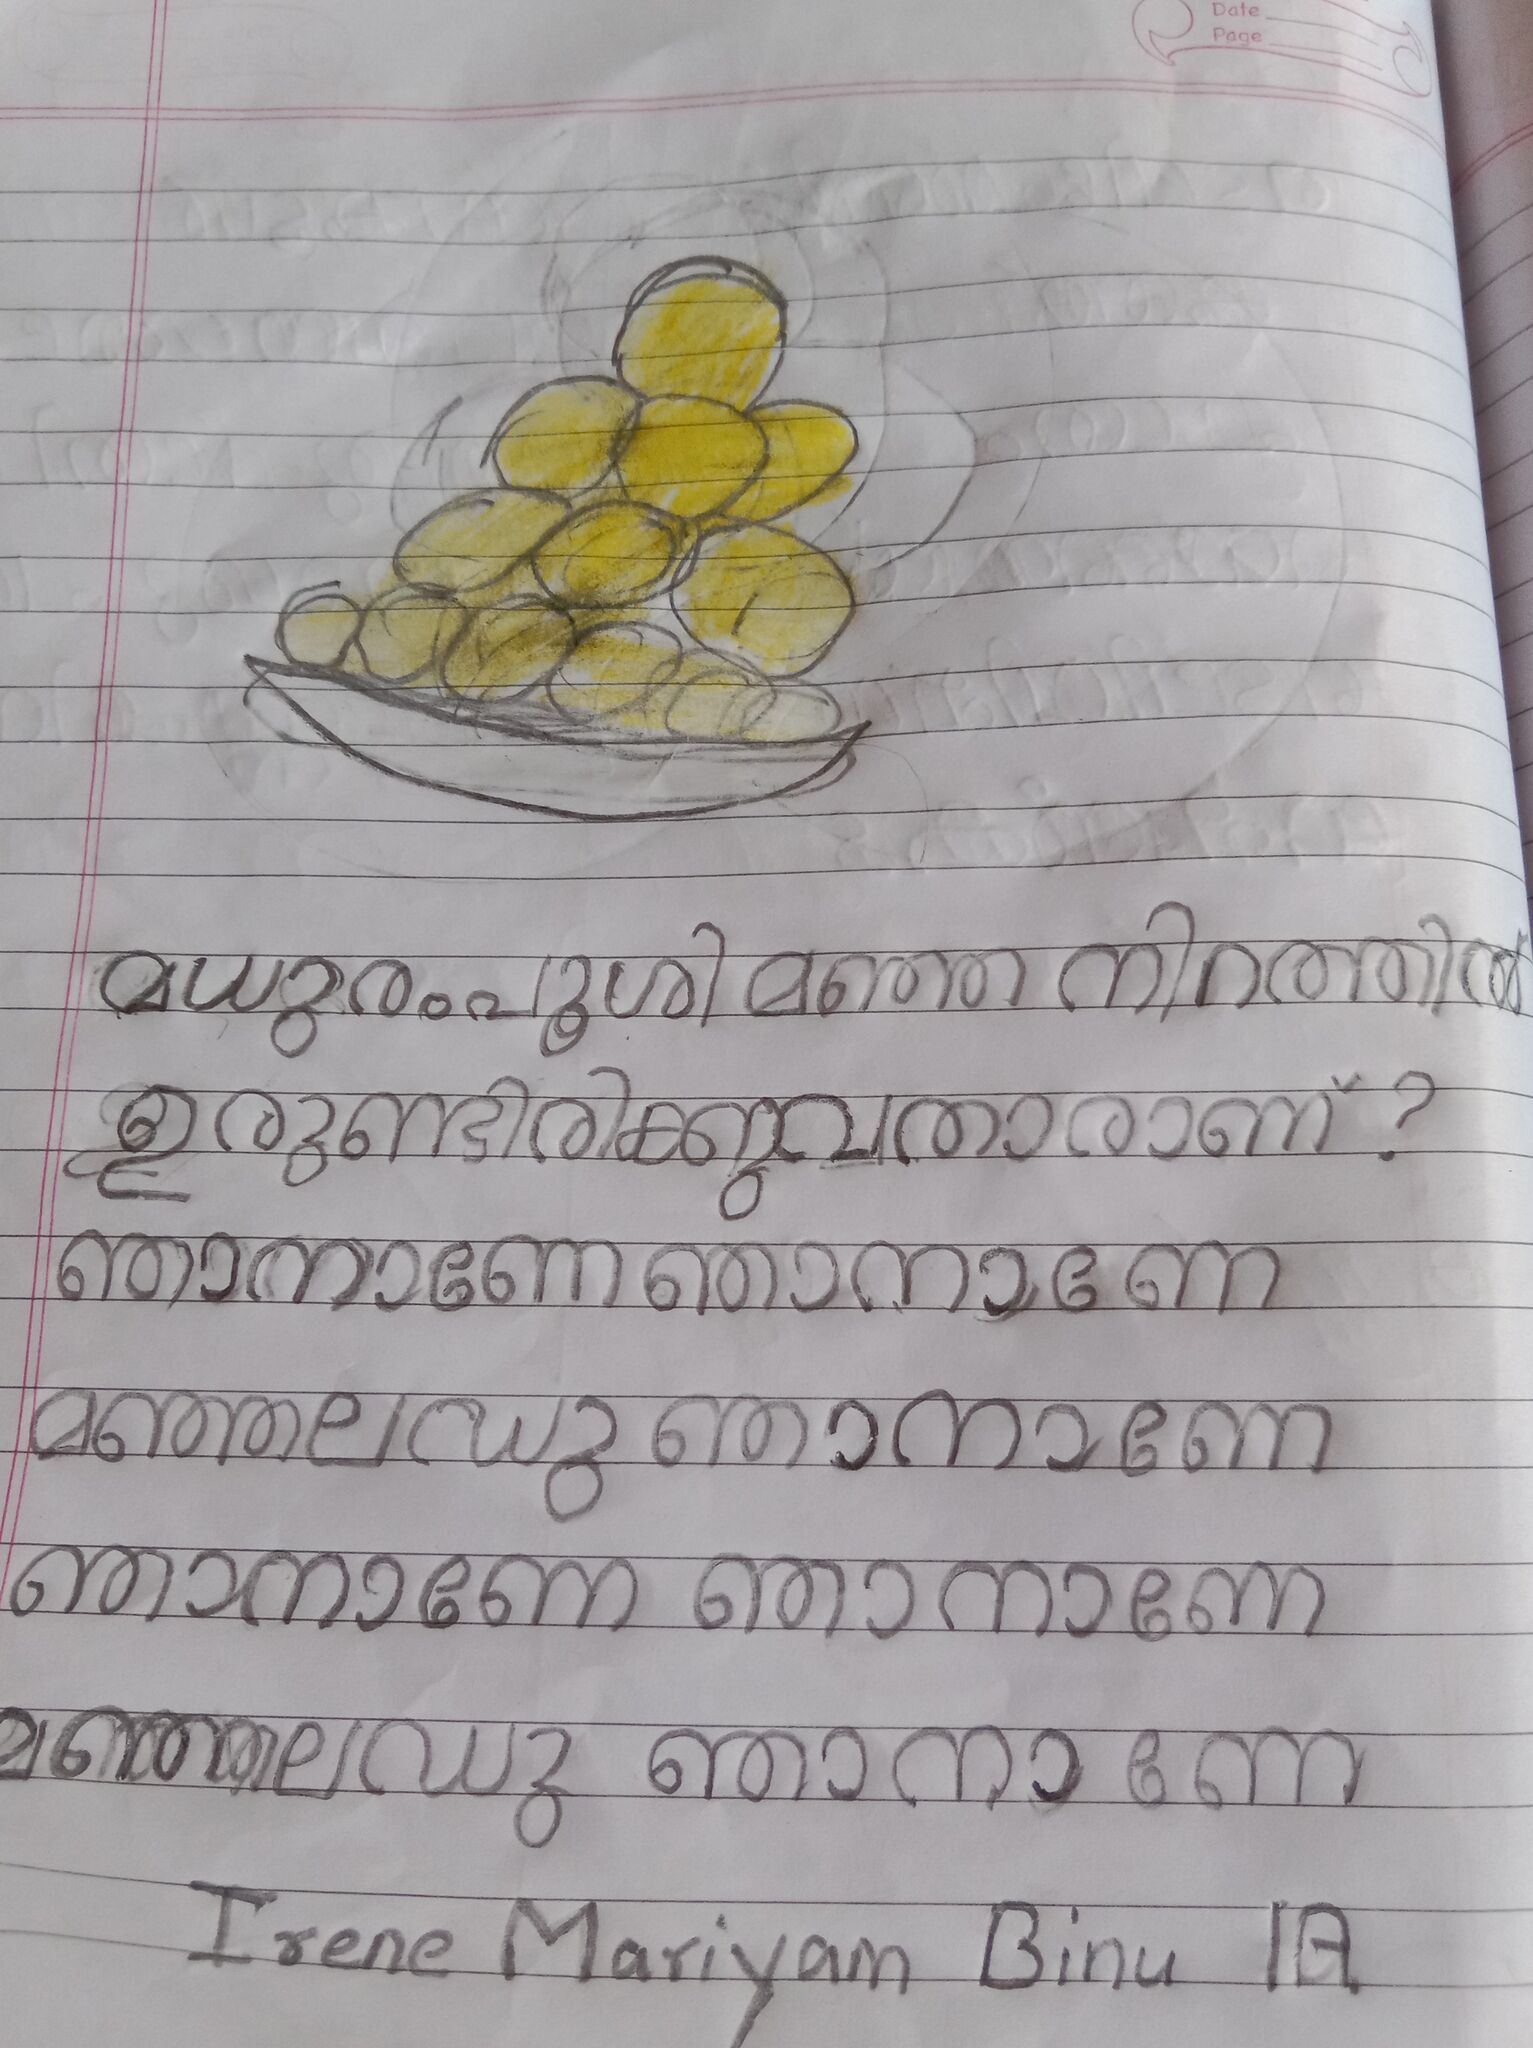 Date
Page
മധുരംപൂശി മഞ്ഞ നിറത്തിൽ
ഉരുണ്ടിരിക്കുന്നവതാരാണ്?
ഞാനാണേ ഞാനാണേ
മഞ്ഞലഡു ഞാനാണേ
ഞാനാണേ ഞാനാണേ
മഞ്ഞലഡു ഞാനാണേ
Irene Mariyam Binu 1A